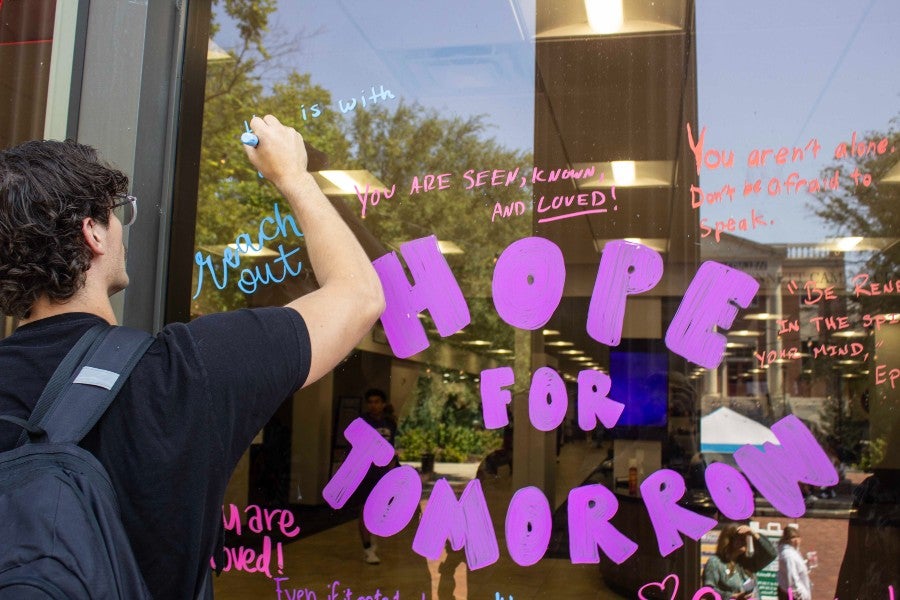 is with
reach
out
YOU ARE SEEN, KNOWN,
AND LOVED!
You aren't alone.
Don't be afraid to
speak.
HOPE
FOR
TOMORROW
"BE
IN THE
YOUR MIND,"
are
loved!
Even if